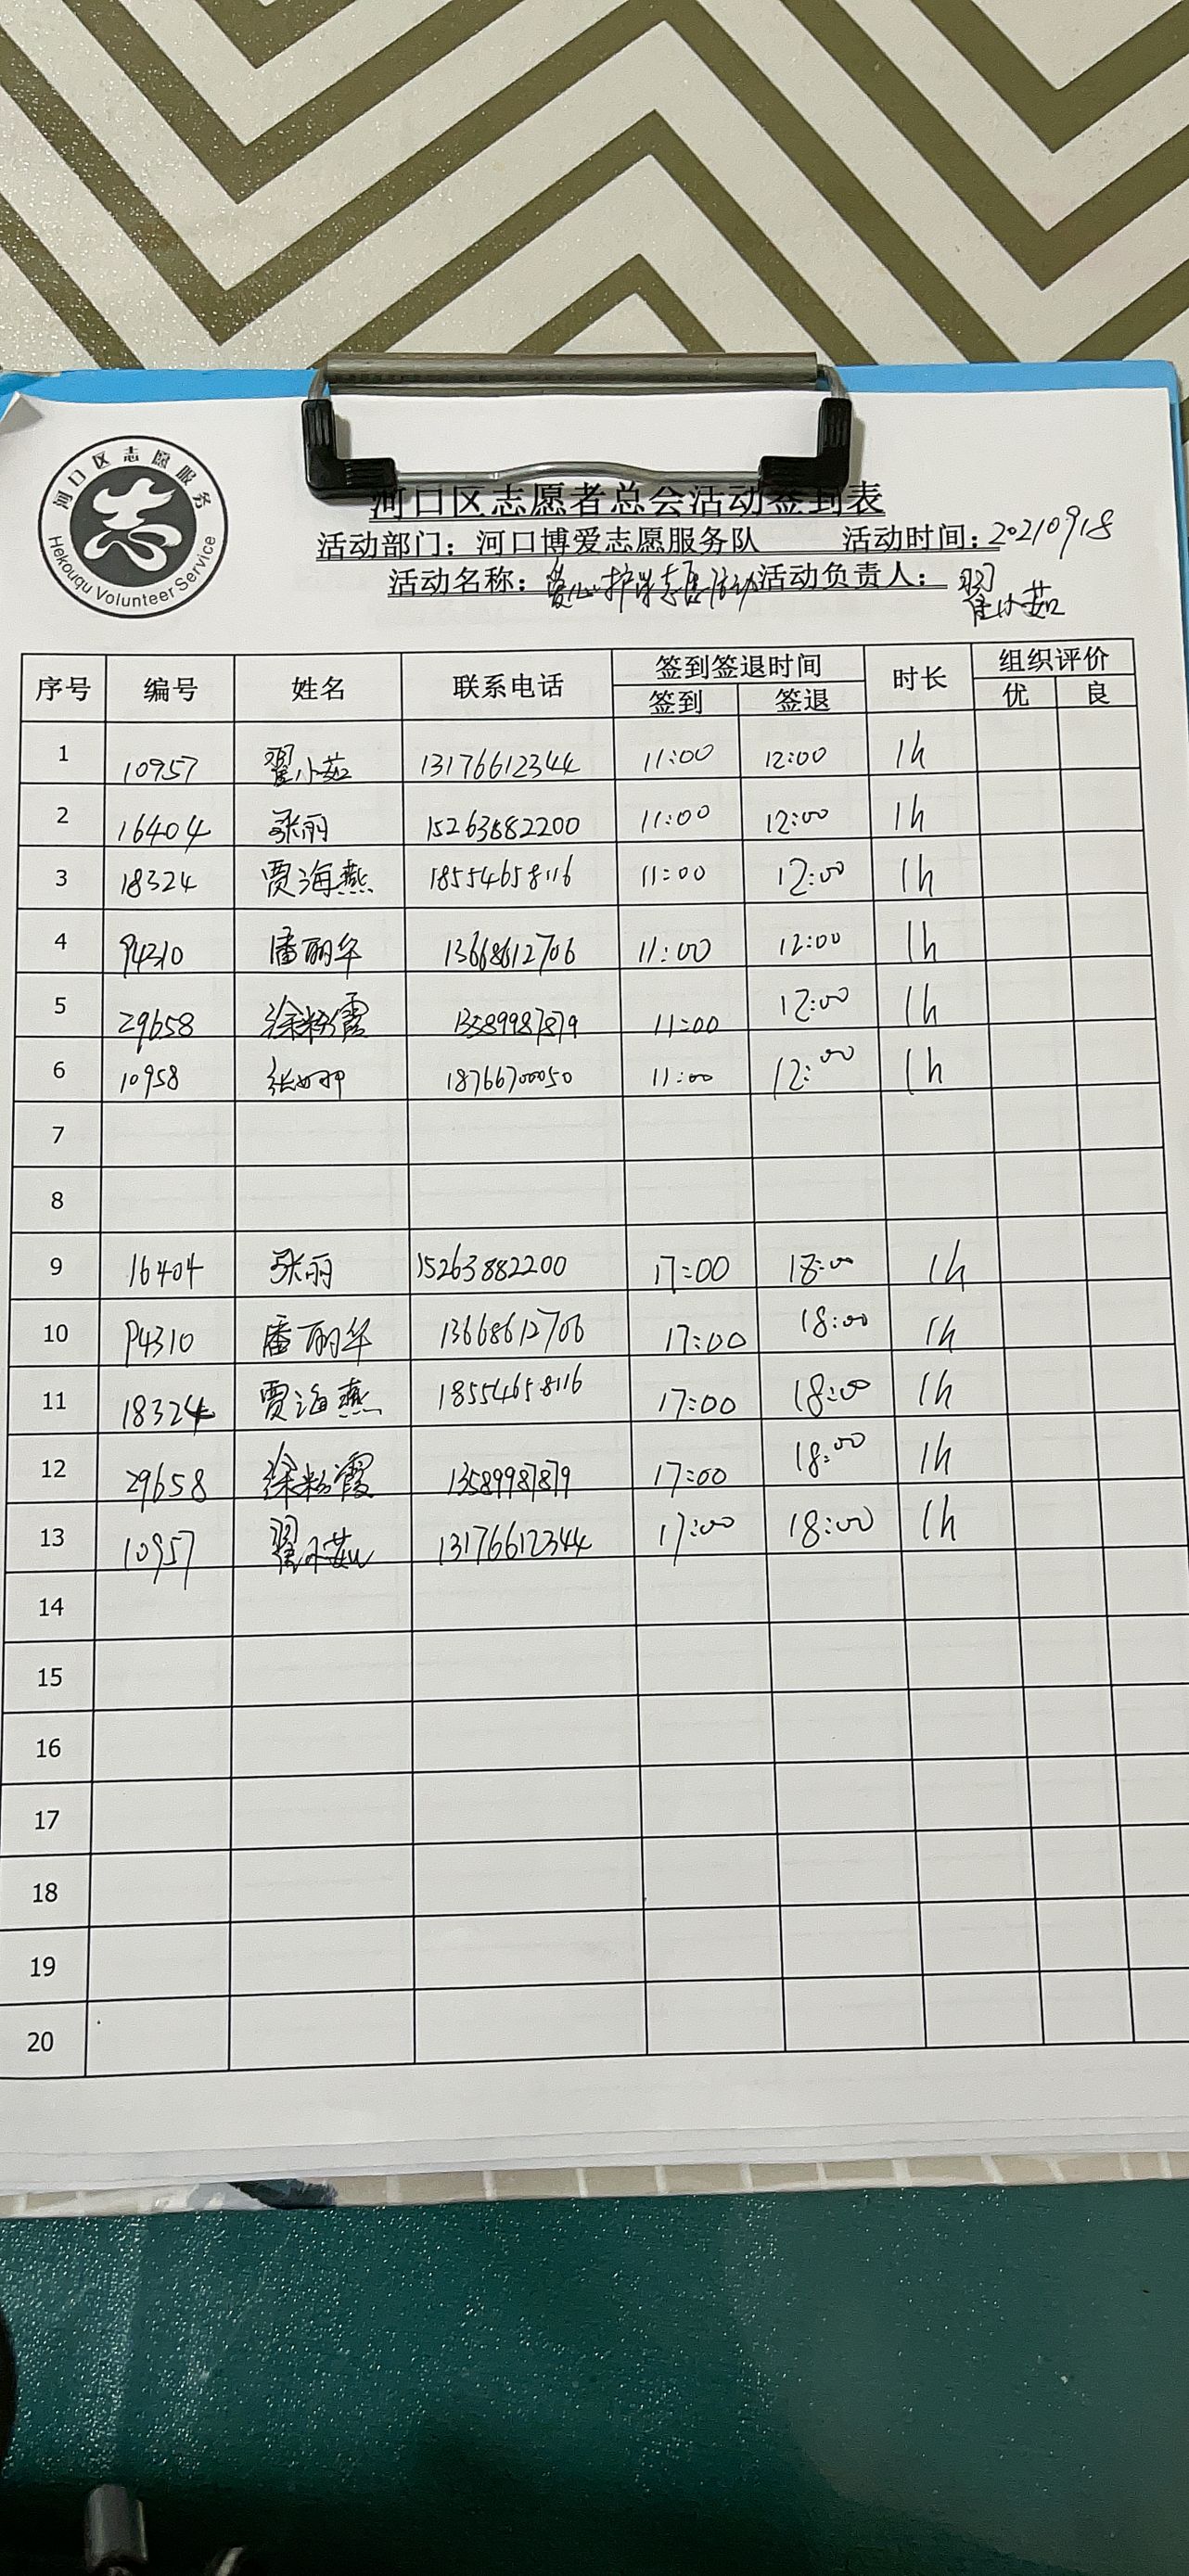 河口区志愿服务
Hekouqu Volunteer Service
河口区志愿者总会活动签到表
活动部门：河口博爱志愿服务队 活动时间：20210918
活动名称：爱心护学志愿活动 活动负责人：翟小茹
序号 编号 姓名 联系电话 签到签退时间 时长 组织评价
签到 签退 优 良
1 10957 翟小茹 13176612344 11:00 12:00 1h
2 16404 张丽 15263882200 11:00 12:00 1h
3 18324 贾海燕 18554658116 11:00 12:00 1h
4 P4310 潘丽华 13668612706 11:00 12:00 1h
5 29658 徐粉霞 13589987879 11:00 12:00 1h
6 10958 18766700050 11:00 12:00 1h
7
8
9 16404 张丽 15263882200 17:00 18:00 1h
10 P4310 潘丽华 13668612706 17:00 18:00 1h
11 18324 贾海燕 18554658116 17:00 18:00 1h
12 29658 徐粉霞 13589987879 17:00 18:00 1h
13 10957 翟小茹 13176612344 17:00 18:00 1h
14
15
16
17
18
19
20